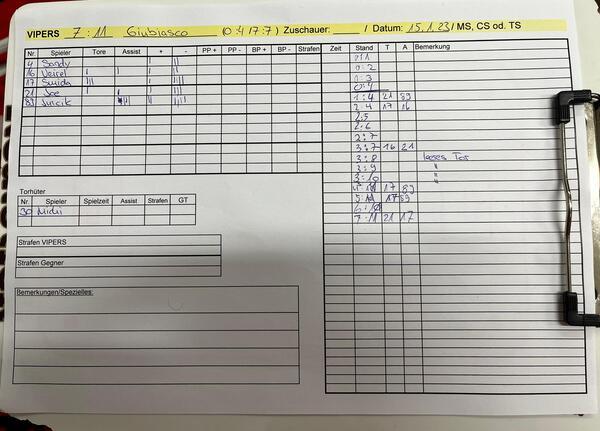 VIPERS 7 : 11 Giubiasco (0:4 / 7:7) Zuschauer: / Datum: 15.1.23 / MS, CS od. TS
Nr. Spieler Tore Assist + - PP + PP - BP + BP - Strafen
4 Sandy
16 Veirel
17 Smida
21 Joe
89 Juicik
Zeit Stand T A Bemerkung
0:1
0:2
0:3
0:4
1:4 21 89
2:4 17 16
2:5
2:6
2:7
3:7 16 21
3:8 leeres Tor
3:9 "
3:10 "
4: 17 89
5: 17 89
6:
7:11 21 17
Torhüter
Nr. Spieler Spielzeit Assist Strafen GT
30 Michi
Strafen VIPERS
Strafen Gegner
Bemerkungen/Spezielles: